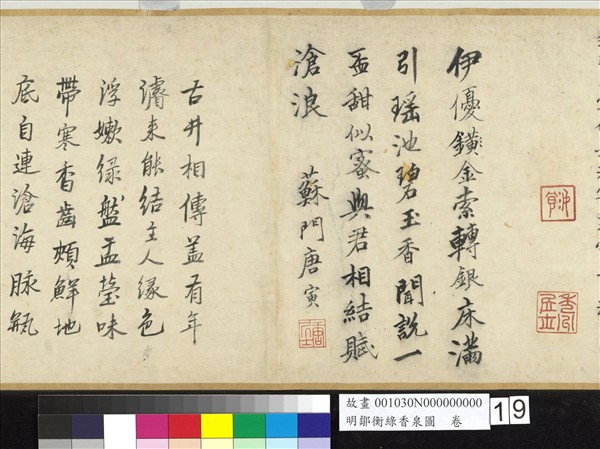 伊優鑚金索轉銀床滿
引瑶池碧玉香聞說一
盃甜似蜜與君相結賦
滄浪　蘇門唐寅
古井相傳盖有年
濬来能结主人緣色
浮嫩綠盤盂瑩味
帶寒香齒頰鮮地
底自連滄海脉瓶
故畫 001030N000000000
明鄒衡綠香泉圖　卷
19